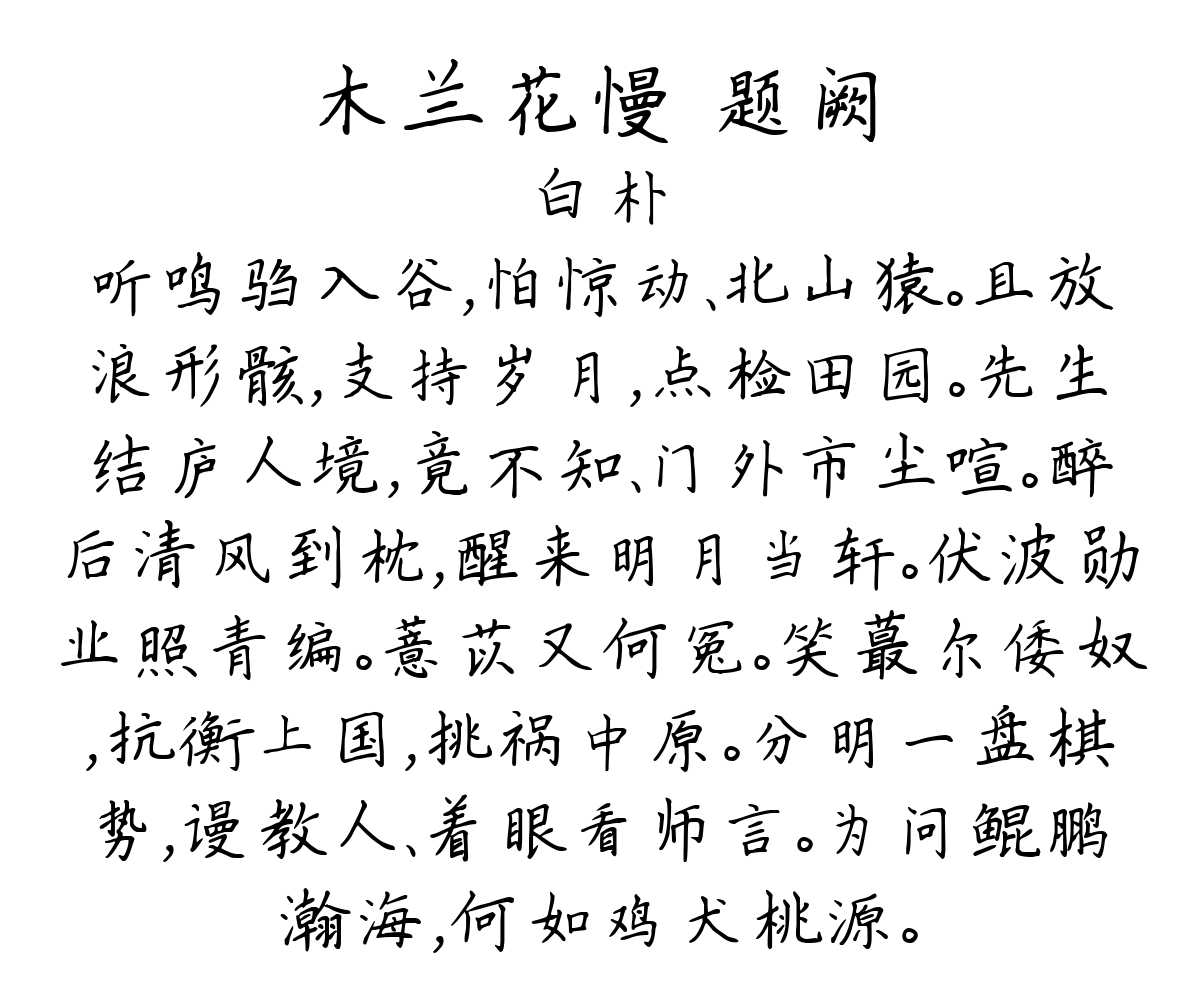 木兰花慢 题阙
白朴
听鸣驺入谷,怕惊动、北山猿。且放
浪形骸,支持岁月,点检田园。先生
结庐人境,竟不知、门外市尘喧。醉
后清风到枕,醒来明月当轩。伏波勋
业照青编。薏苡又何冤。笑蕞尔倭奴
,抗衡上国,挑祸中原。分明一盘棋
势,谩教人、着眼看师言。为问鲲鹏
瀚海,何如鸡犬桃源。